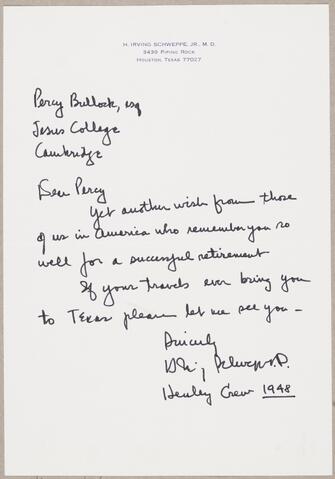 H. IRVING SCHWEPPE, JR., M. D.
3439 PIPING ROCK
HOUSTON, TEXAS 77027
Percy Bullock, esq
Jesus College
Cambridge
Dear Percy
Yet another wish from those
of us in America who remember you so
well for a successful retirement
If your travels ever bring you
to Texas please let me see you –
Sincerely
Schweppe
Henley Crew 1948